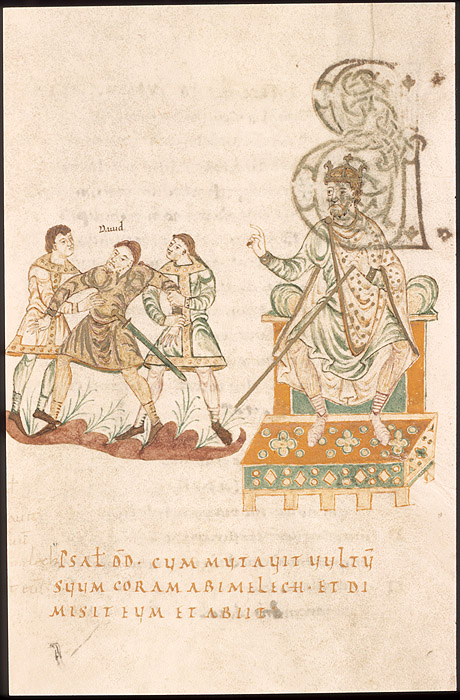 Dauid
PSAƚ D̄D · CYM MYTAYIT YYLTŪ
SYYM CORAM ABIMELECH · ET DI
MISIT EYM ET ABIIT